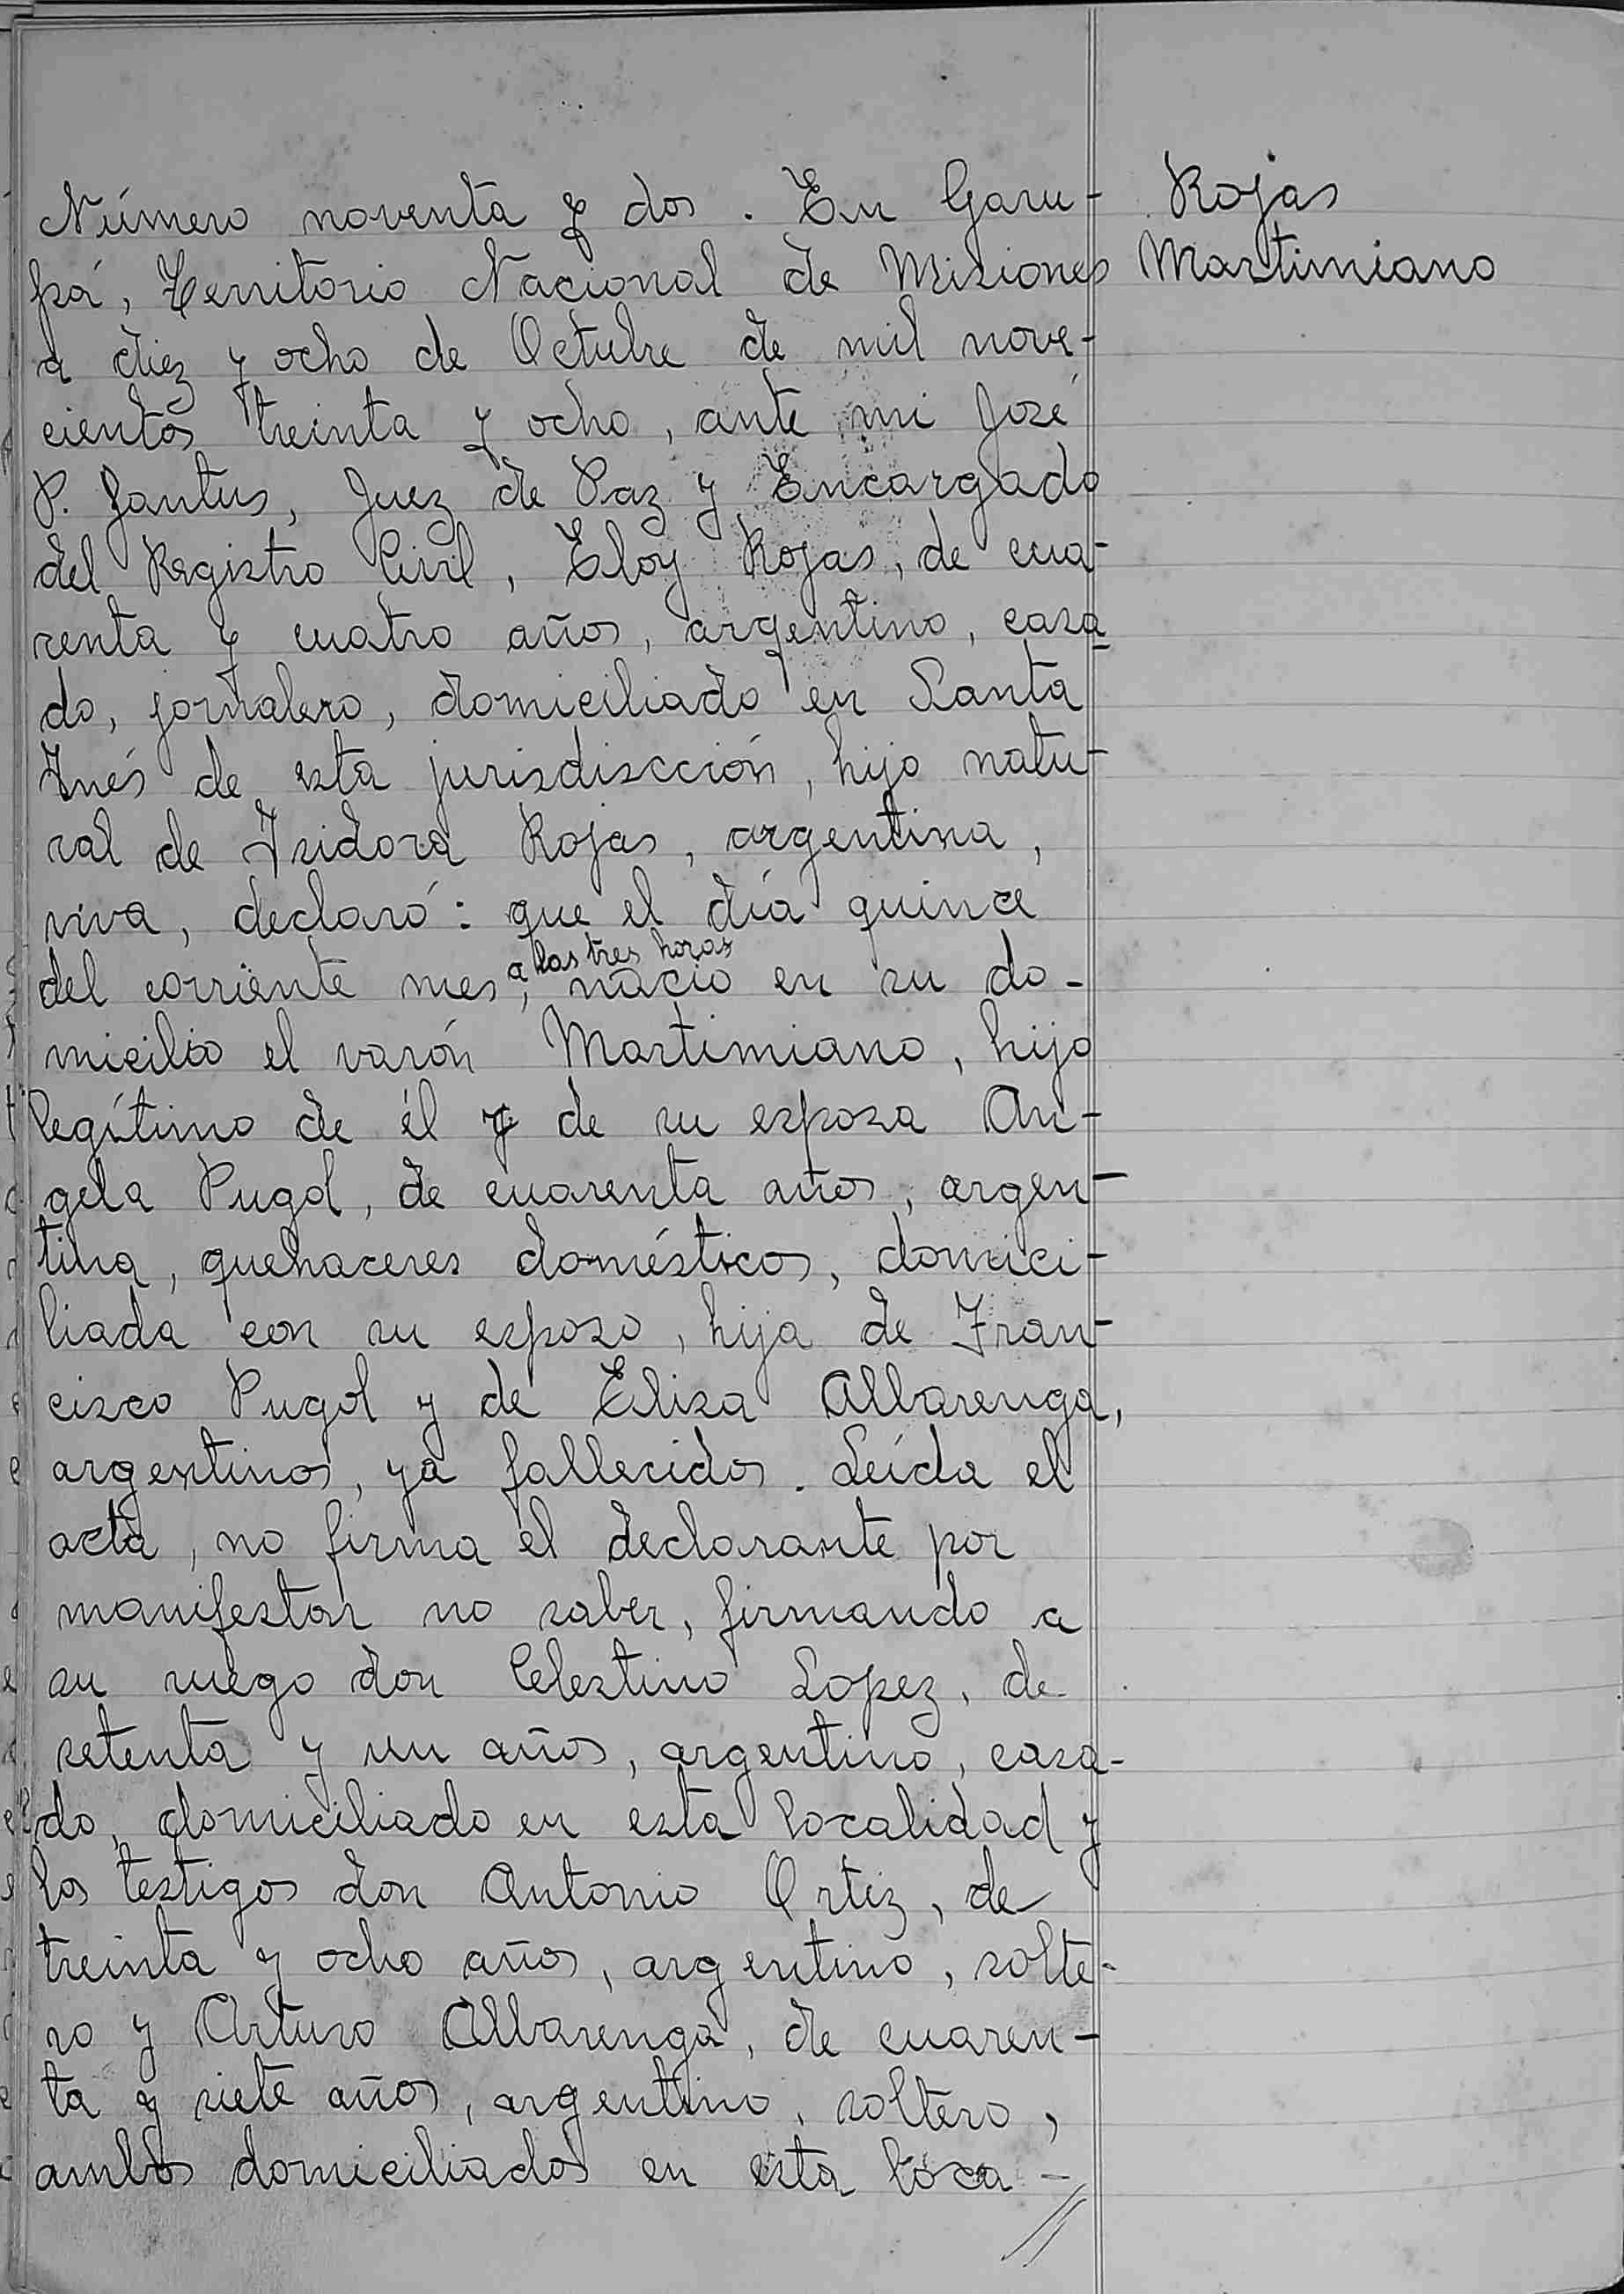 Número noventa y dos. En Garu-
pá, Territorio Nacional de Misiones
a diez y ocho de Octubre de mil nove-
cientos treinta y ocho, ante mi José
P. Jantus, Juez de Paz y Encargado
del Registro Civil, Eloy Rojas, de cua-
renta y cuatro años, argentino, casa-
do, jornalero, domiciliado en Santa
Inés de esta jurisdiscción, hijo natu-
ral de Isidora Rojas, argentina,
viva, declaró: que el día quince
a las tres horas
del corriente mes, nació en su do-
micilio el varón Martimiano, hijo
legítimo de él y de su esposa An-
gela Pugol, de cuarenta años, argen-
tina, quehaceres domésticos, domici-
liada con su esposo, hija de Fran-
cisco Pugol y de Elisa Albarenga,
argentinos, ya fallecidos. Leída el
acta, no firma el declarante por
manifestar no saber, firmando a
su ruego don Celestino Lopez, de
setenta y un años, argentino, casa-
do, domiciliado en esta localidad y
los testigos don Antonio Ortiz, de
treinta y ocho años, argentino, solte-
ro y Arturo Albarenga, de cuaren-
ta y siete años, argentino, soltero,
ambos domiciliados en esta loca-
//
Rojas
Martimiano